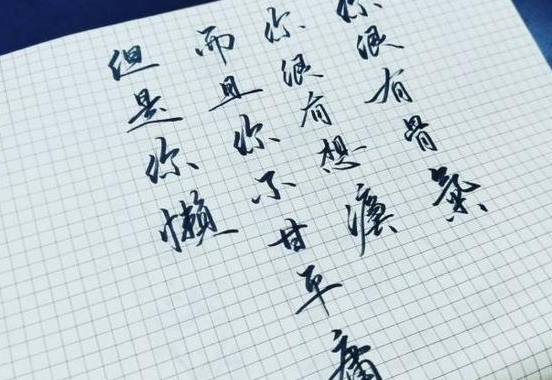 你很有骨氣
你很有想灋
而且你不甘平庸
但是你懶